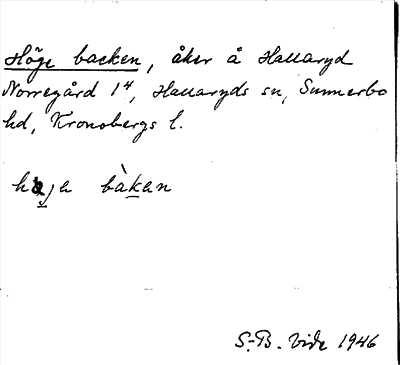 Höge backen, åker å Hallaryd
Norregård 1⁴, Hallaryds sn, Sunnerbo
hd, Kronobergs l.
bàkan
S.-B. Vide 1946